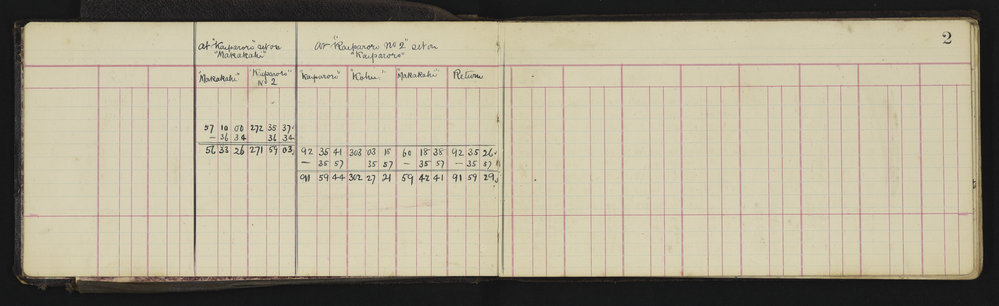 2
At "Kaiparoro" set on
"Makakahi"
At "Kaiparoro No 2" set on
"Kaiparoro"
"Makakahi" "Kaiparoro" No 2 "Kaiparoro" "Kohu" "Makakahi" Return
57 10 00 272 35 37
— 36 34 36 34
56 33 26 271 59 03 92 35 41 303 03 18 60 18 38 92 35 26
— 35 57 35 57 — 35 57 — 35 57
91 59 44 302 27 21 59 42 41 91 59 29